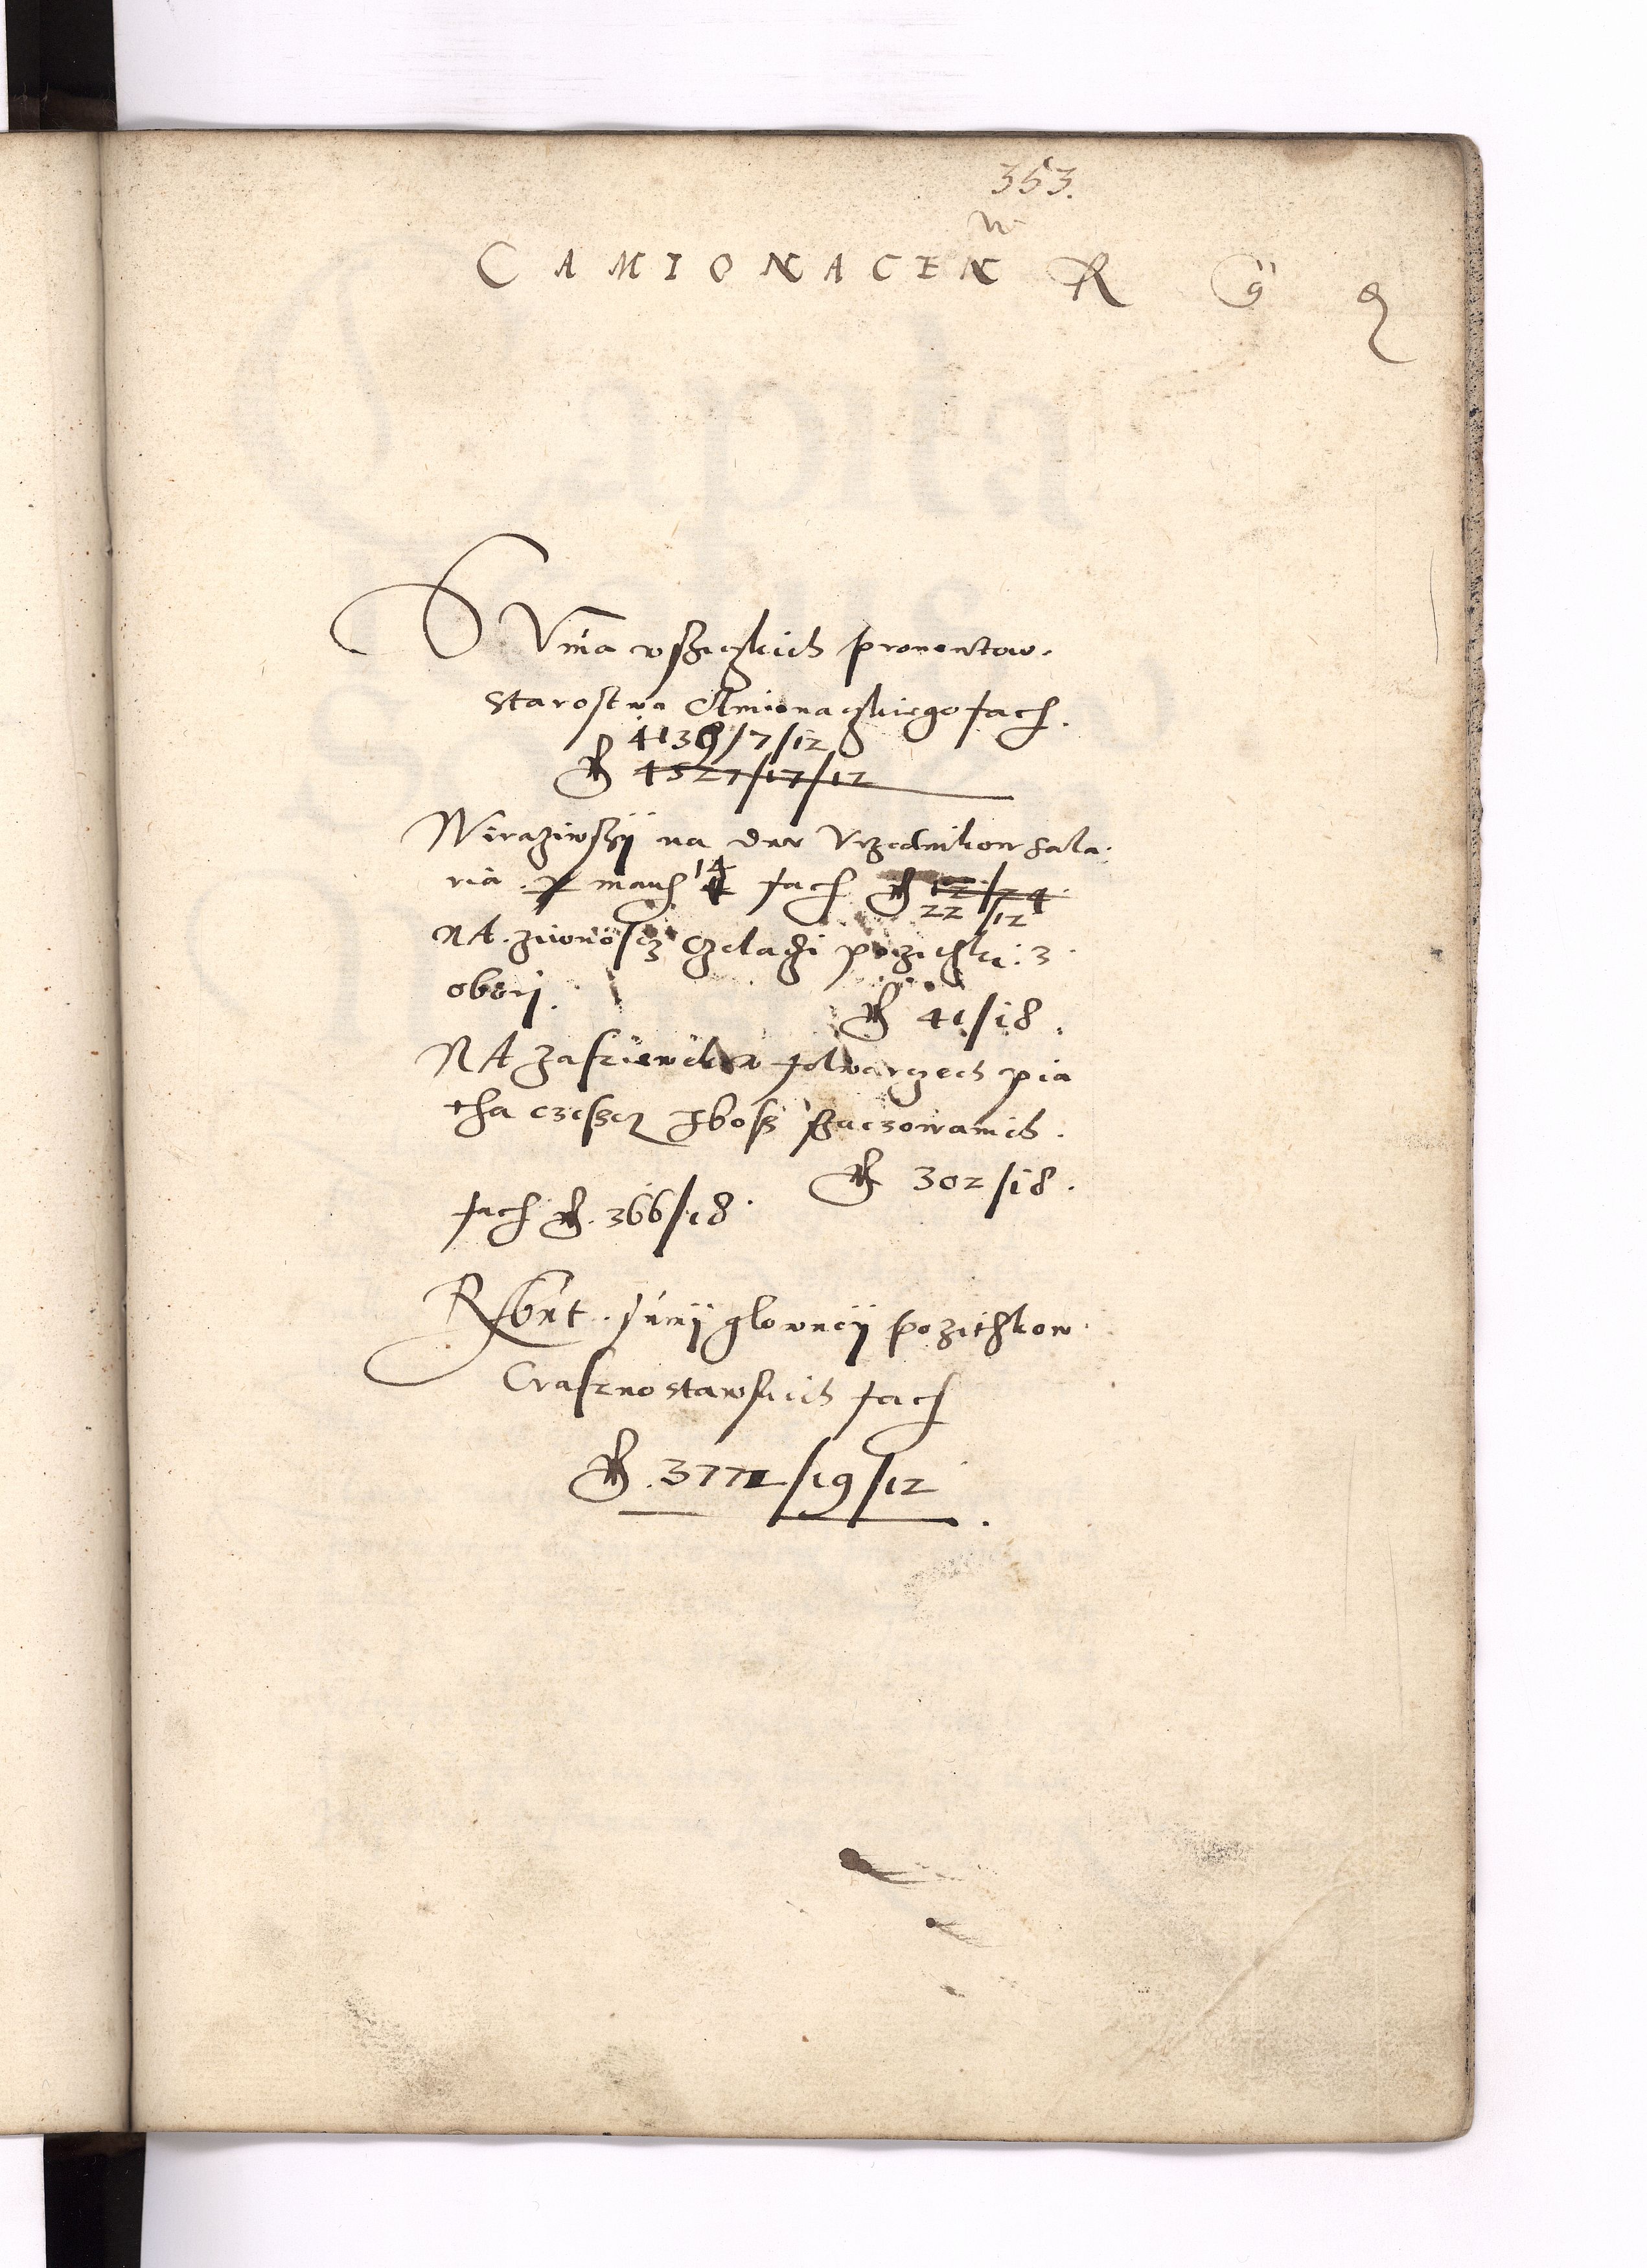 353.
CAMIONACEN R
Sum̃a wszyczkich prowentow.
starostwa Camionaczkiego facit.
4139/7/12
fl 4527/17/12
Wiraziwszÿ na dwu Vrzednikow sala.
ria. marc 14 facit fl
22/12
NA. ziwnoscz czeladzi pozithki. z
oborÿ. fl 41/18.
NA zasziewek w folwarczech pia
tha czescz zboz szaczowanich.
fl 302/18.
facit fl. 366/18.
Restant. sum̃ÿ glownëÿ pozithkow.
Crasznostawskich facit
fl. 3772/19/12.